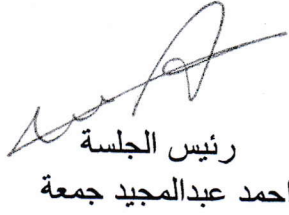 رئيس الجلسة
احمد عبدالمجيد جمعة